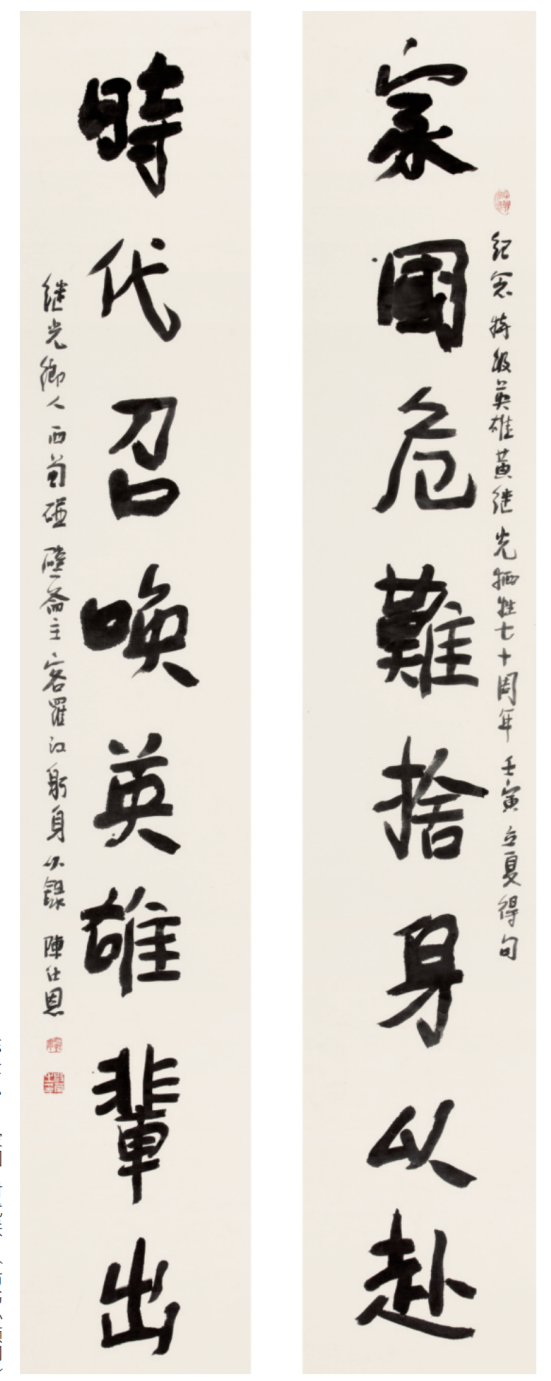 家國危難捨身以赴
紀念特級英雄黃继光犧牲七十周年 壬寅立夏得句
時代召喚英雄輩出
继光鄉人西蜀碰壁斋主客羅江躬身以錄 陳仕恩